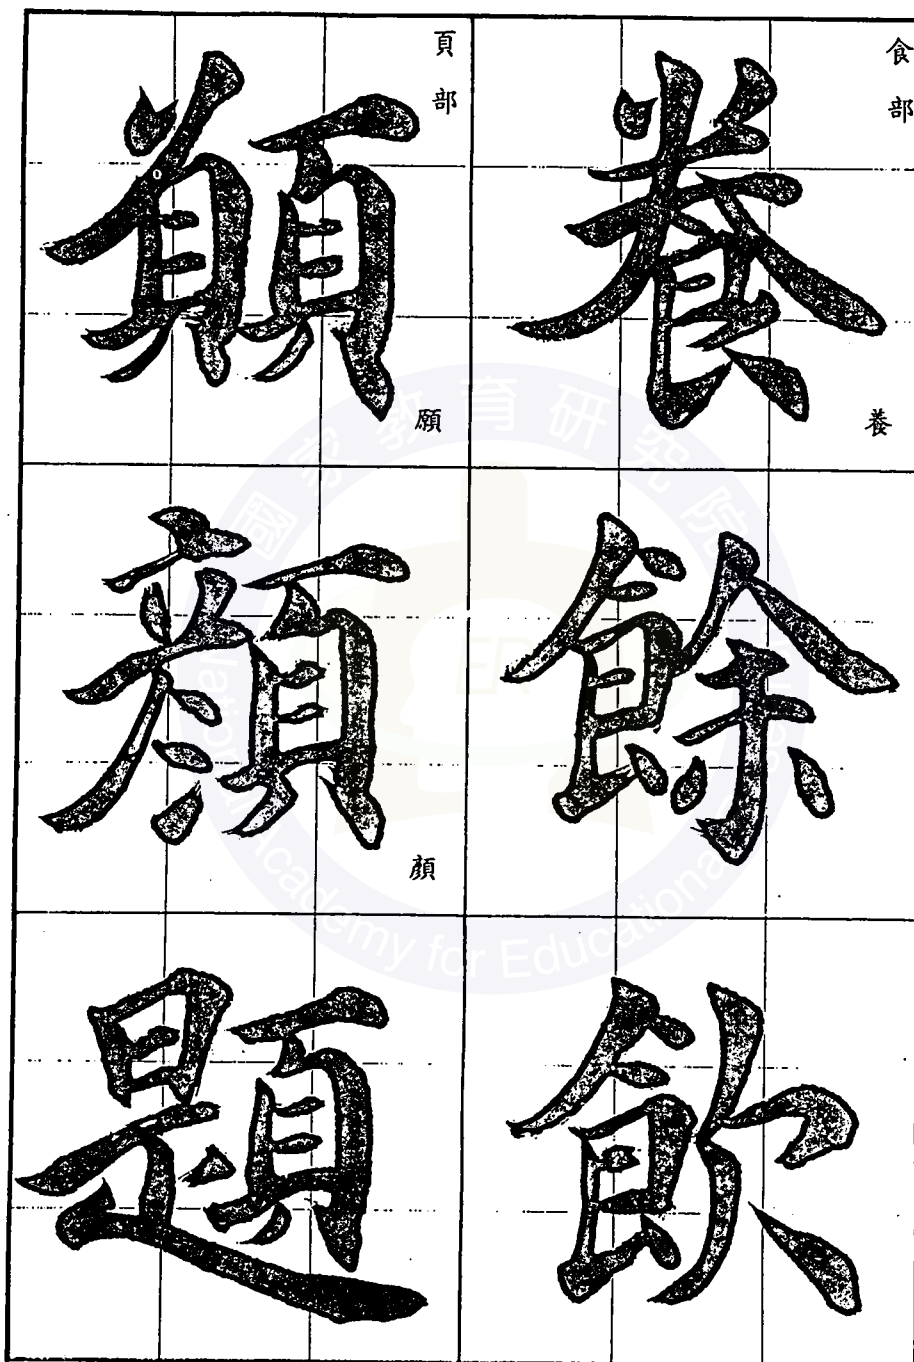 食部
養
養
餘
飲
頁部
願
願
顏
顏
題
國家教育研究院
National Academy for Educational Research